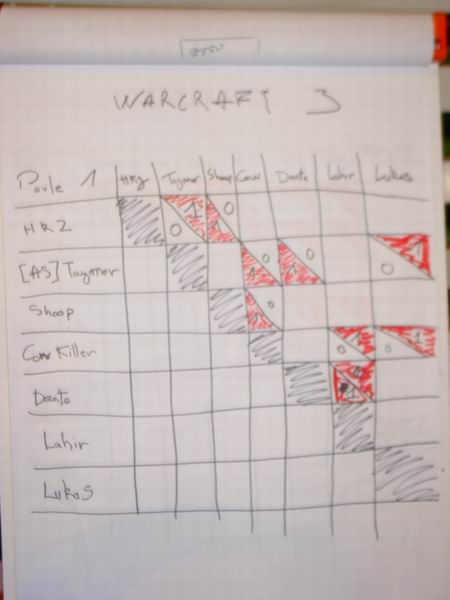 WARCRAFT 3
Poule 1 HRZ Taymor Shoop Cow Dante Lahir Lukas
HRZ 1 0 0
[AS] Taymor 0 1 0 1 0 1
Shoop 1 0
Cow Killer 1 0 1 0
Dante 1
Lahir
Lukas